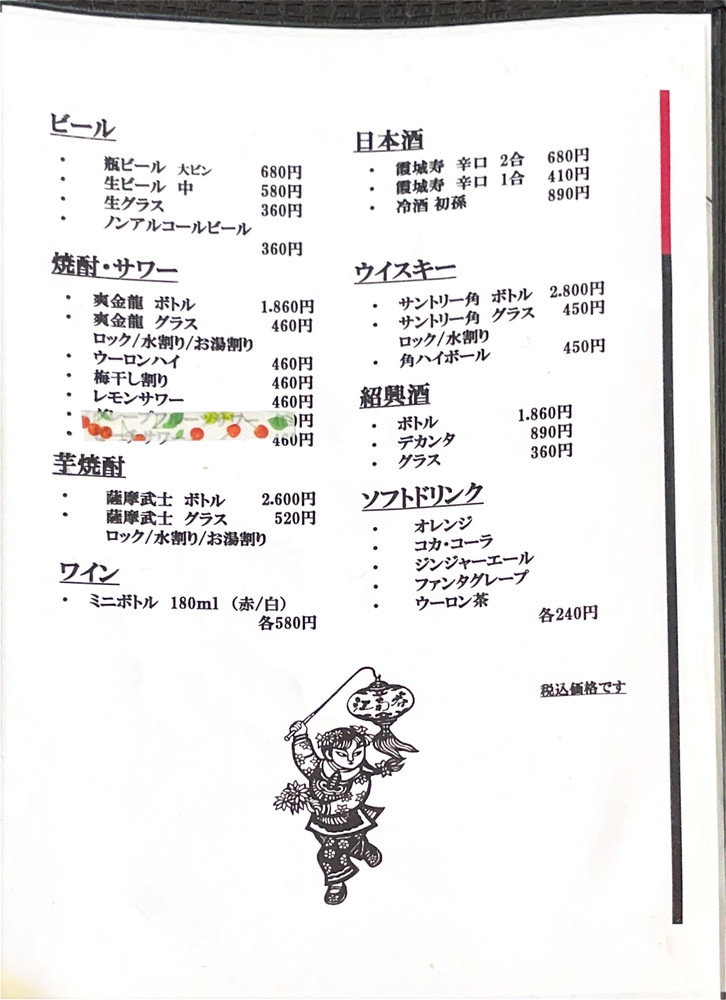 ビール
・ 瓶ビール 大ビン 680円
・ 生ビール 中 580円
・ 生グラス 360円
・ ノンアルコールビール
360円
焼酎・サワー
・ 爽金龍 ボトル 1.860円
・ 爽金龍 グラス 460円
ロック/水割り/お湯割り
・ ウーロンハイ 460円
・ 梅干し割り 460円
・ レモンサワー 460円
円
460円
芋焼酎
・ 薩摩武士 ボトル 2.600円
・ 薩摩武士 グラス 520円
ロック/水割り/お湯割り
ワイン
・ ミニボトル 180ml (赤/白)
各580円
日本酒
・ 霞城寿 辛口 2合 680円
・ 霞城寿 辛口 1合 410円
・ 冷酒 初孫 890円
ウイスキー
・ サントリー角 ボトル 2.800円
・ サントリー角 グラス 450円
ロック/水割り
・ 角ハイボール 450円
紹興酒
・ ボトル 1.860円
・ デカンタ 890円
・ グラス 360円
ソフトドリンク
・ オレンジ
・ コカ・コーラ
・ ジンジャーエール
・ ファンタグレープ
・ ウーロン茶
各240円
税込価格です
江南春